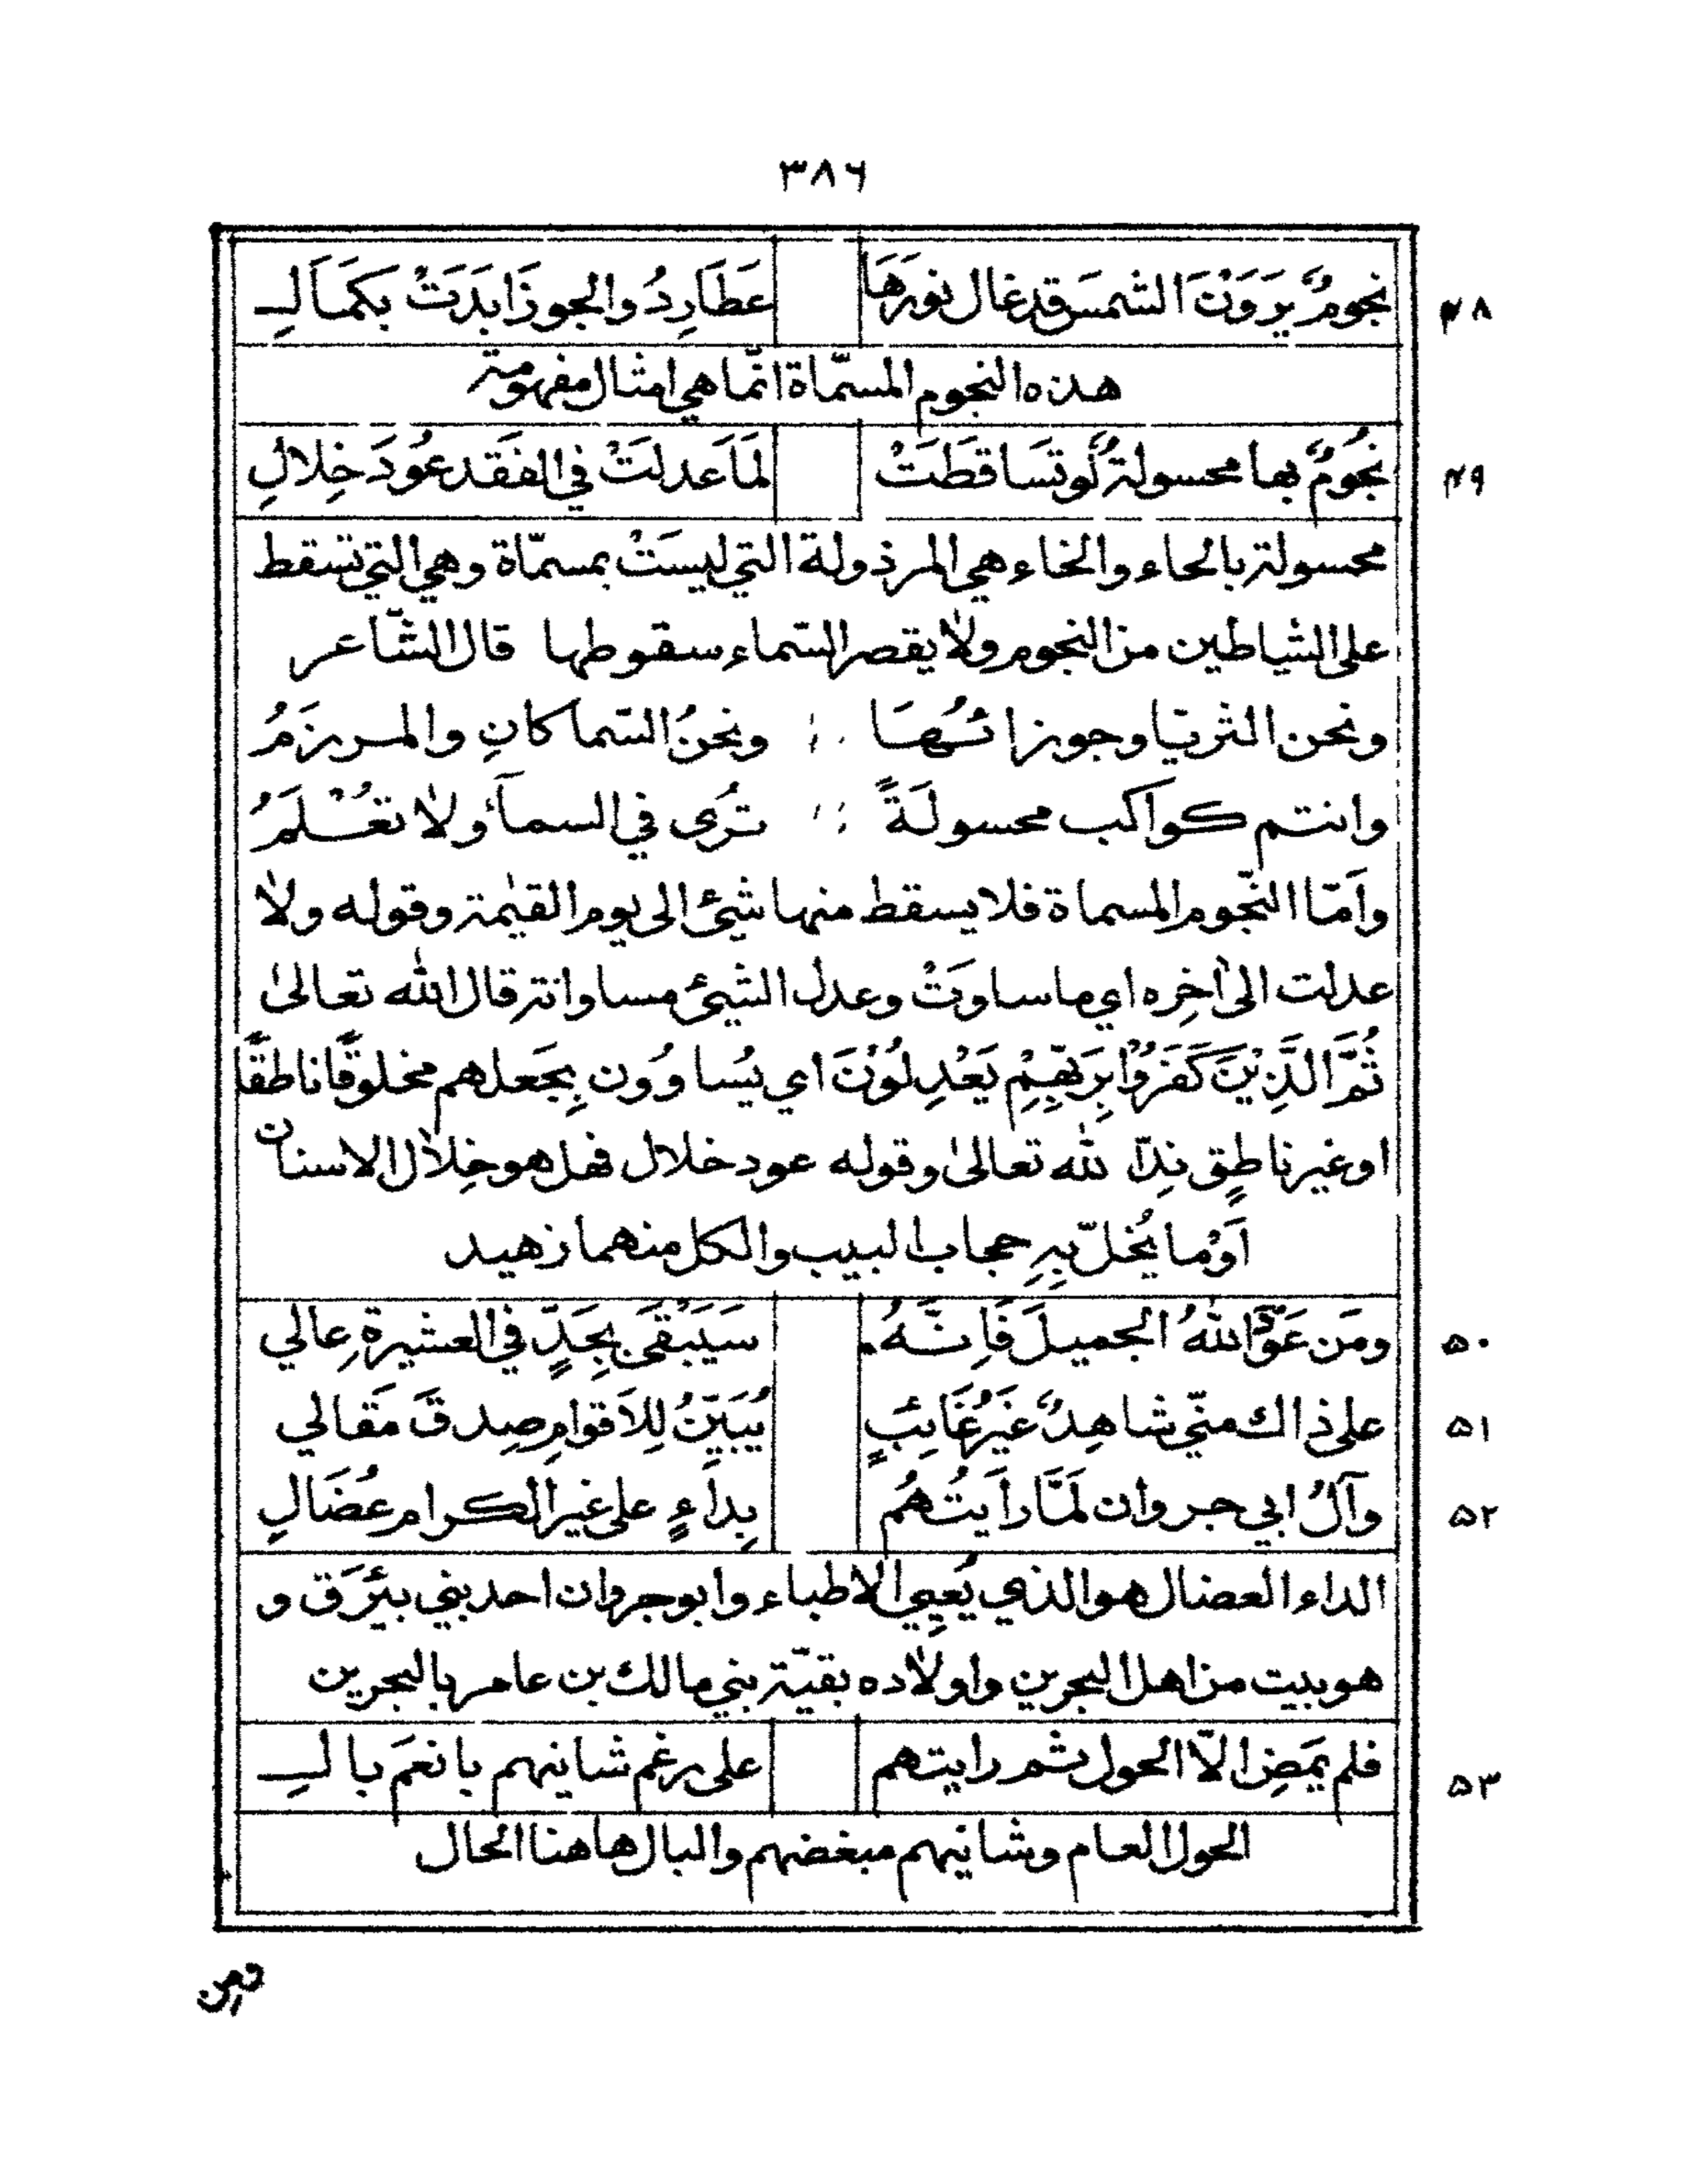 ٣٨٦
نجومٌ يرَوْنَ الشمسَ قد غال نورَهَا عَطَارِدُ والجوزَا بَدَتْ بكمَالِ ۴٨
هذه النجوم المسمّاة انّما هي امثال مفهومة
نجُومٌ بها محسولةٌ لَو تسَاقطَتْ لمَا عدلتْ في الفقَد عُودَ خِلالِ ۴٩
محسولة بالحاء والخاء هي المرذولة التي ليسَتْ بمسمّاة وهي التي تسقط
على الشياطين من النجوم ولا يقصر السّماء سقوطها قال الشّاعر
ونحن الثريّا وجوزائُهَا ونحنُ السّماكانِ والمرزمُ
وانتم كواكب محسولَةً تُرى في السمآءِ ولا تُعْلَمُ
وأمّا النّجوم المسماة فلا يسقط منها شيئ الى يوم القيٰمة وقوله ولا
عدلت الى اٰخِره اي ما ساوتْ وعدل الشيئ مساواته قال الله تعالىٰ
ثُمَّ الَّذِيْنَ كَفَرُوْا بِرَبِّهِمْ يَعْدِلُوْنَ اي يُساوُون بِجَعلهم مخلوقًا ناطقًا
او غير ناطِقٍ نِدّا لله تعالىٰ وقوله عود خلال فهل هو خِلال الاسنان
اَوْ ما يُخلّ بِهِ حجاب البيب والكل منهما زهيد
ومَن عَوَّدَ اللهُ الجميلَ فَاِنَّهُ سَيَبْقَى بِجَدٍّ في العشيرةِ عالي ۵٠
على ذاك منّي شاهِدٌ غَيرُ غَائِبٍ يُبَيّنُ لِلاَقوامِ صِدقَ مَقالي ۵١
وآلُ ابي جروان لَمَّا رأيتُهُم بِداءٍ على غير الكرام عُضَالِ ۵٢
الداء العضال هو الذي يُعيِي الاطباء وابو جروان احد بني بيْرَق و
هو بيت من اهل البحرين واولاده بقيّة بني مالك بن عامر بالبحرين
فلم يمَضِ الّا الحول ثم رايتهم على رغم شانيهم بانعَم بالِ ۵٣
الحول العام وشانيهم مبغضهم والبال هاهنا الحال